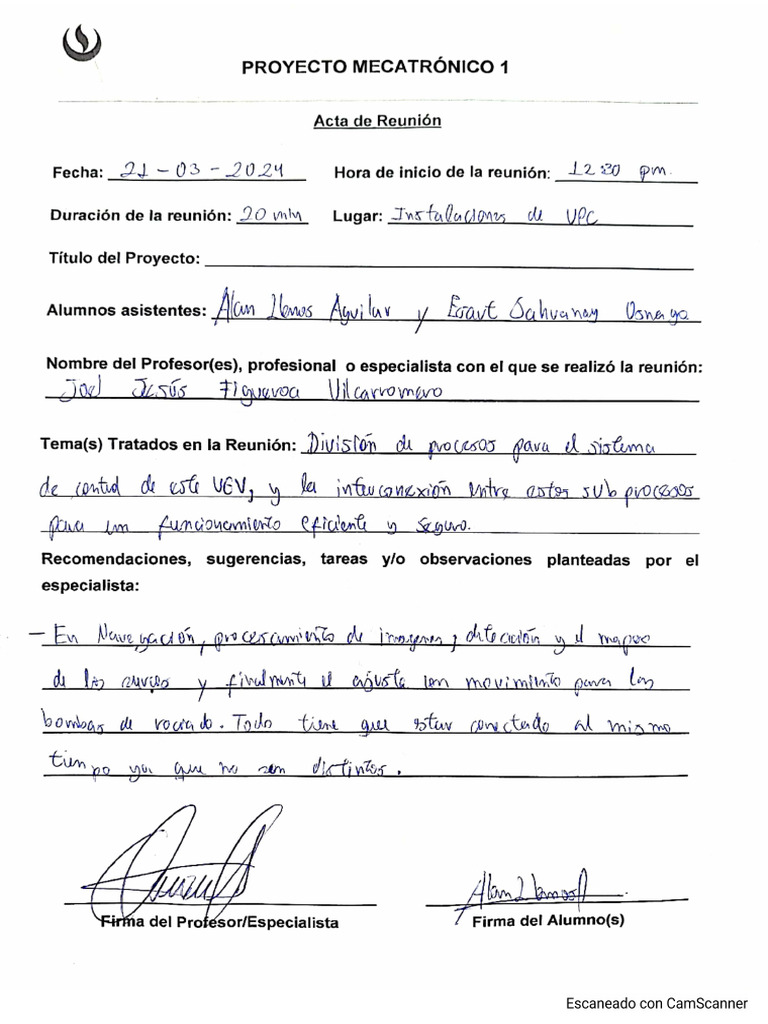 PROYECTO MECATRÓNICO 1
Acta de Reunión
Fecha: 21-03-2024 Hora de inicio de la reunión: 12:30 pm.
Duración de la reunión: 20 min Lugar: Instalaciones de UPC
Título del Proyecto:
Alumnos asistentes: Alan Llanos Aguilar y Sahuanay
Nombre del Profesor(es), profesional o especialista con el que se realizó la reunión:
Joel Jesús Figueroa Vilcarromero
Tema(s) Tratados en la Reunión: División de procesos para el sistema
de control de este UGV, y la interconexión entre estos subprocesos
para un funcionamiento eficiente y seguro.
Recomendaciones, sugerencias, tareas y/o observaciones planteadas por el
especialista:
- En Navegación, procesamiento de imagenes, detección y el mapeo
de los y finalmente el ajuste con movimiento para las
bombas de rociado. Todo tiene que estar conectado al mismo
tiempo ya que no son distintos.
Firma del Profesor/Especialista
Alan Llanos A
Firma del Alumno(s)
Escaneado con CamScanner